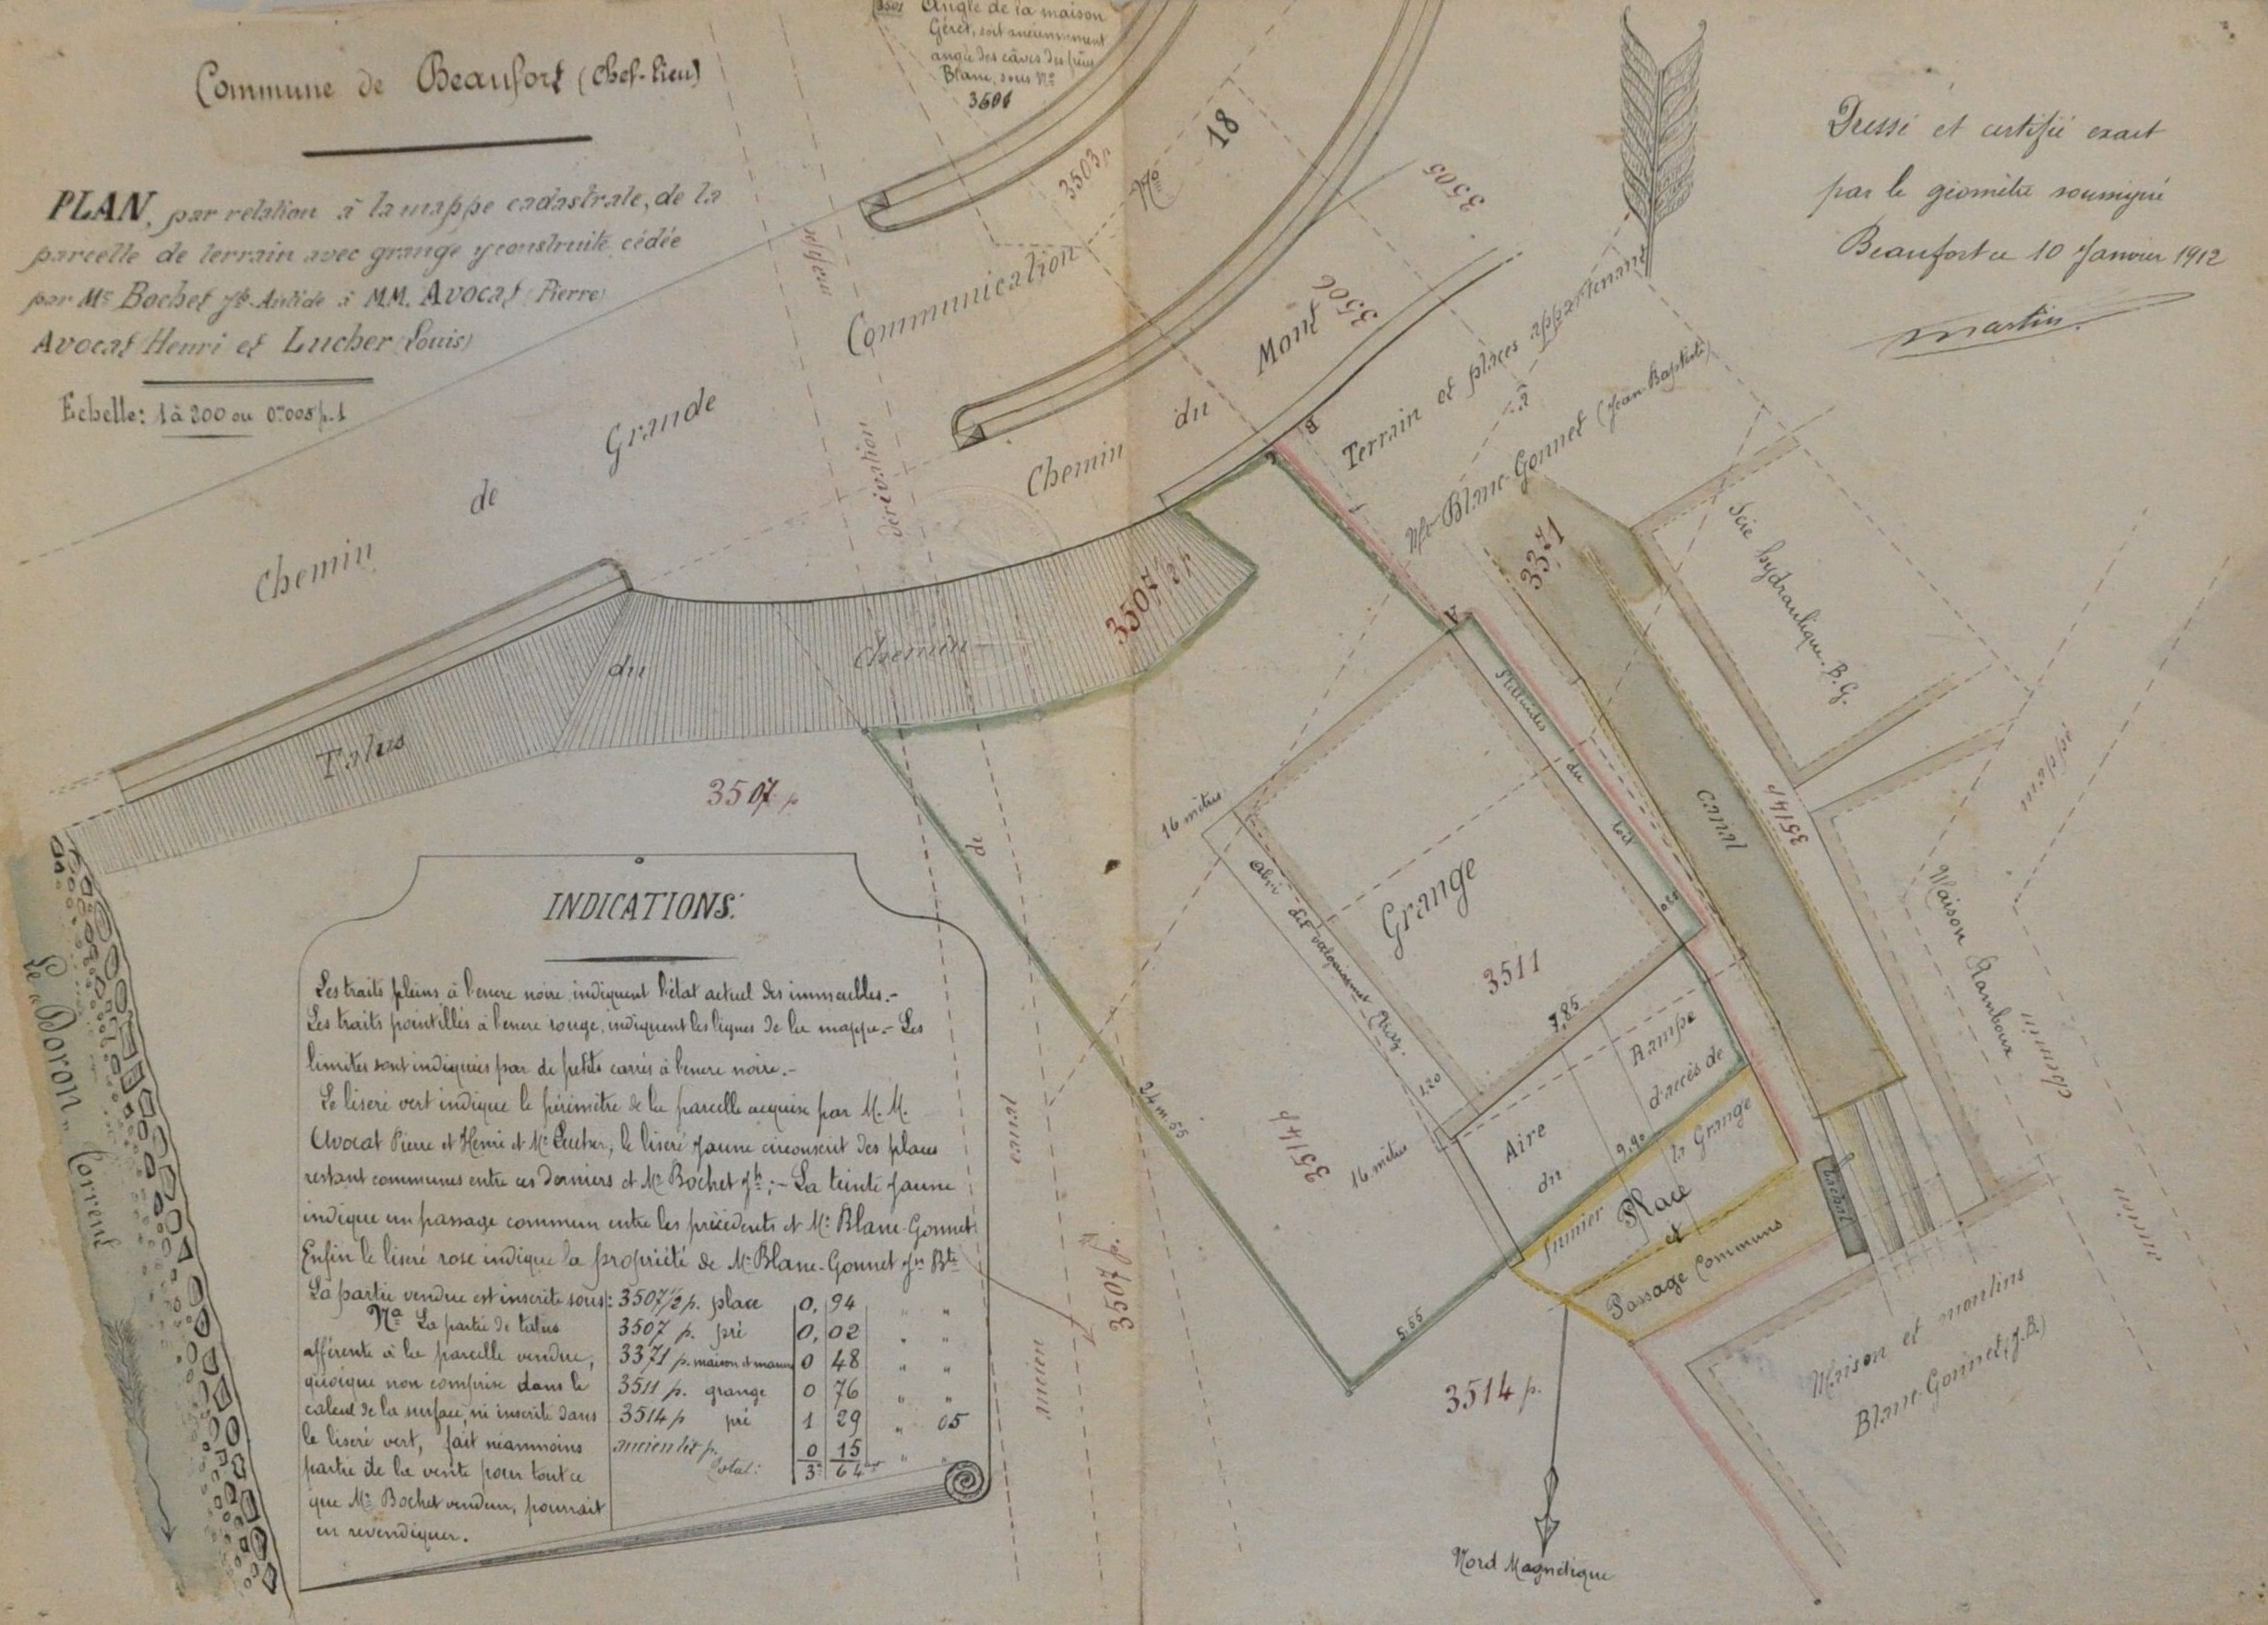 Commune de Beaufort (Chef-lieu)
PLAN, par relation à la mappe cadastrale, de la
parcelle de terrain avec grange y construite, cédée
par Mr Bochet Jh-Antide à MM. Avocat (Pierre)
Avocat Henri et Lucher (Louis)
Echelle: 1 à 200 ou 0m005 p. 1
3501 Angle de la maison
Géret, soit anciennement
angle des câves des frères
Blanc, sous No
3501
Dressé et certifié exact
par le géomètre soussigné
Beaufort ce 10 Janvier 1912
Martin.
Chemin de Grande Communication No 18
3503 p
3505
3506
Chemin du Mont
mappe
dérivation
Terrain et places appartenant
à
Mr Blanc-Gonnet (Jean-Baptiste)
B
A
3371
Scie hydraulique. B. G.
3507 1/2 p
Talus du chemin
3507 p.
Stillicides du toit
0.50
canal
3514 p
mappe
chemin
ancien
Maison Ramboux
16 mètres
Grange
3511
7,85
1,20
16 mètres
Rampe
d'accès de
la Grange
Aire
du
fumier
9,90
Place
et
Passage Communs
bachal
Maison et moulins
Blanc-Gonnet (J.B.)
24 m 55
5.55
3514 p
3514 p.
3507 p.
de
canal
ancien
Nord Magnétique
Le "Doron" torrent
INDICATIONS.
Les traits pleins à l'encre noire, indiquent l'état actuel des immeubles.-
Les traits pointillés à l'encre rouge, indiquent les lignes de la mappe.- Les
limites sont indiquées par de petits carrés à l'encre noire.-
Le liseré vert indique le périmètre de la parcelle acquise par M. M.
Avocat Pierre et Henri et Mr Lucher, le liseré jaune circonscrit des places
restant communes entre ces derniers et Mr Bochet Jh; - La teinte jaune
indique un passage commun entre les précédents et Mr Blanc-Gonnet.
Enfin le liseré rose indique la propriété de Mr Blanc-Gonnet Jn Bte
La partie vendue est inscrite sous: 3507 1/2 p. place 0, 94 " "
3507 p. pré 0, 02 " "
3371 p. maison et masure 0 48 " "
3511 p. grange 0 76 " "
3514 p pré 1 29 " 05
ancien lit p. 0 15 " "
Total: 3 64
Na La partie de talus
afférente à la parcelle vendue,
quoique non comprise dans le
calcul de la surface, ni inscrite dans
le liseré vert, fait néanmoins
partie de la vente pour tout ce
que Mr Bochet vendeur, pourrait
en revendiquer.